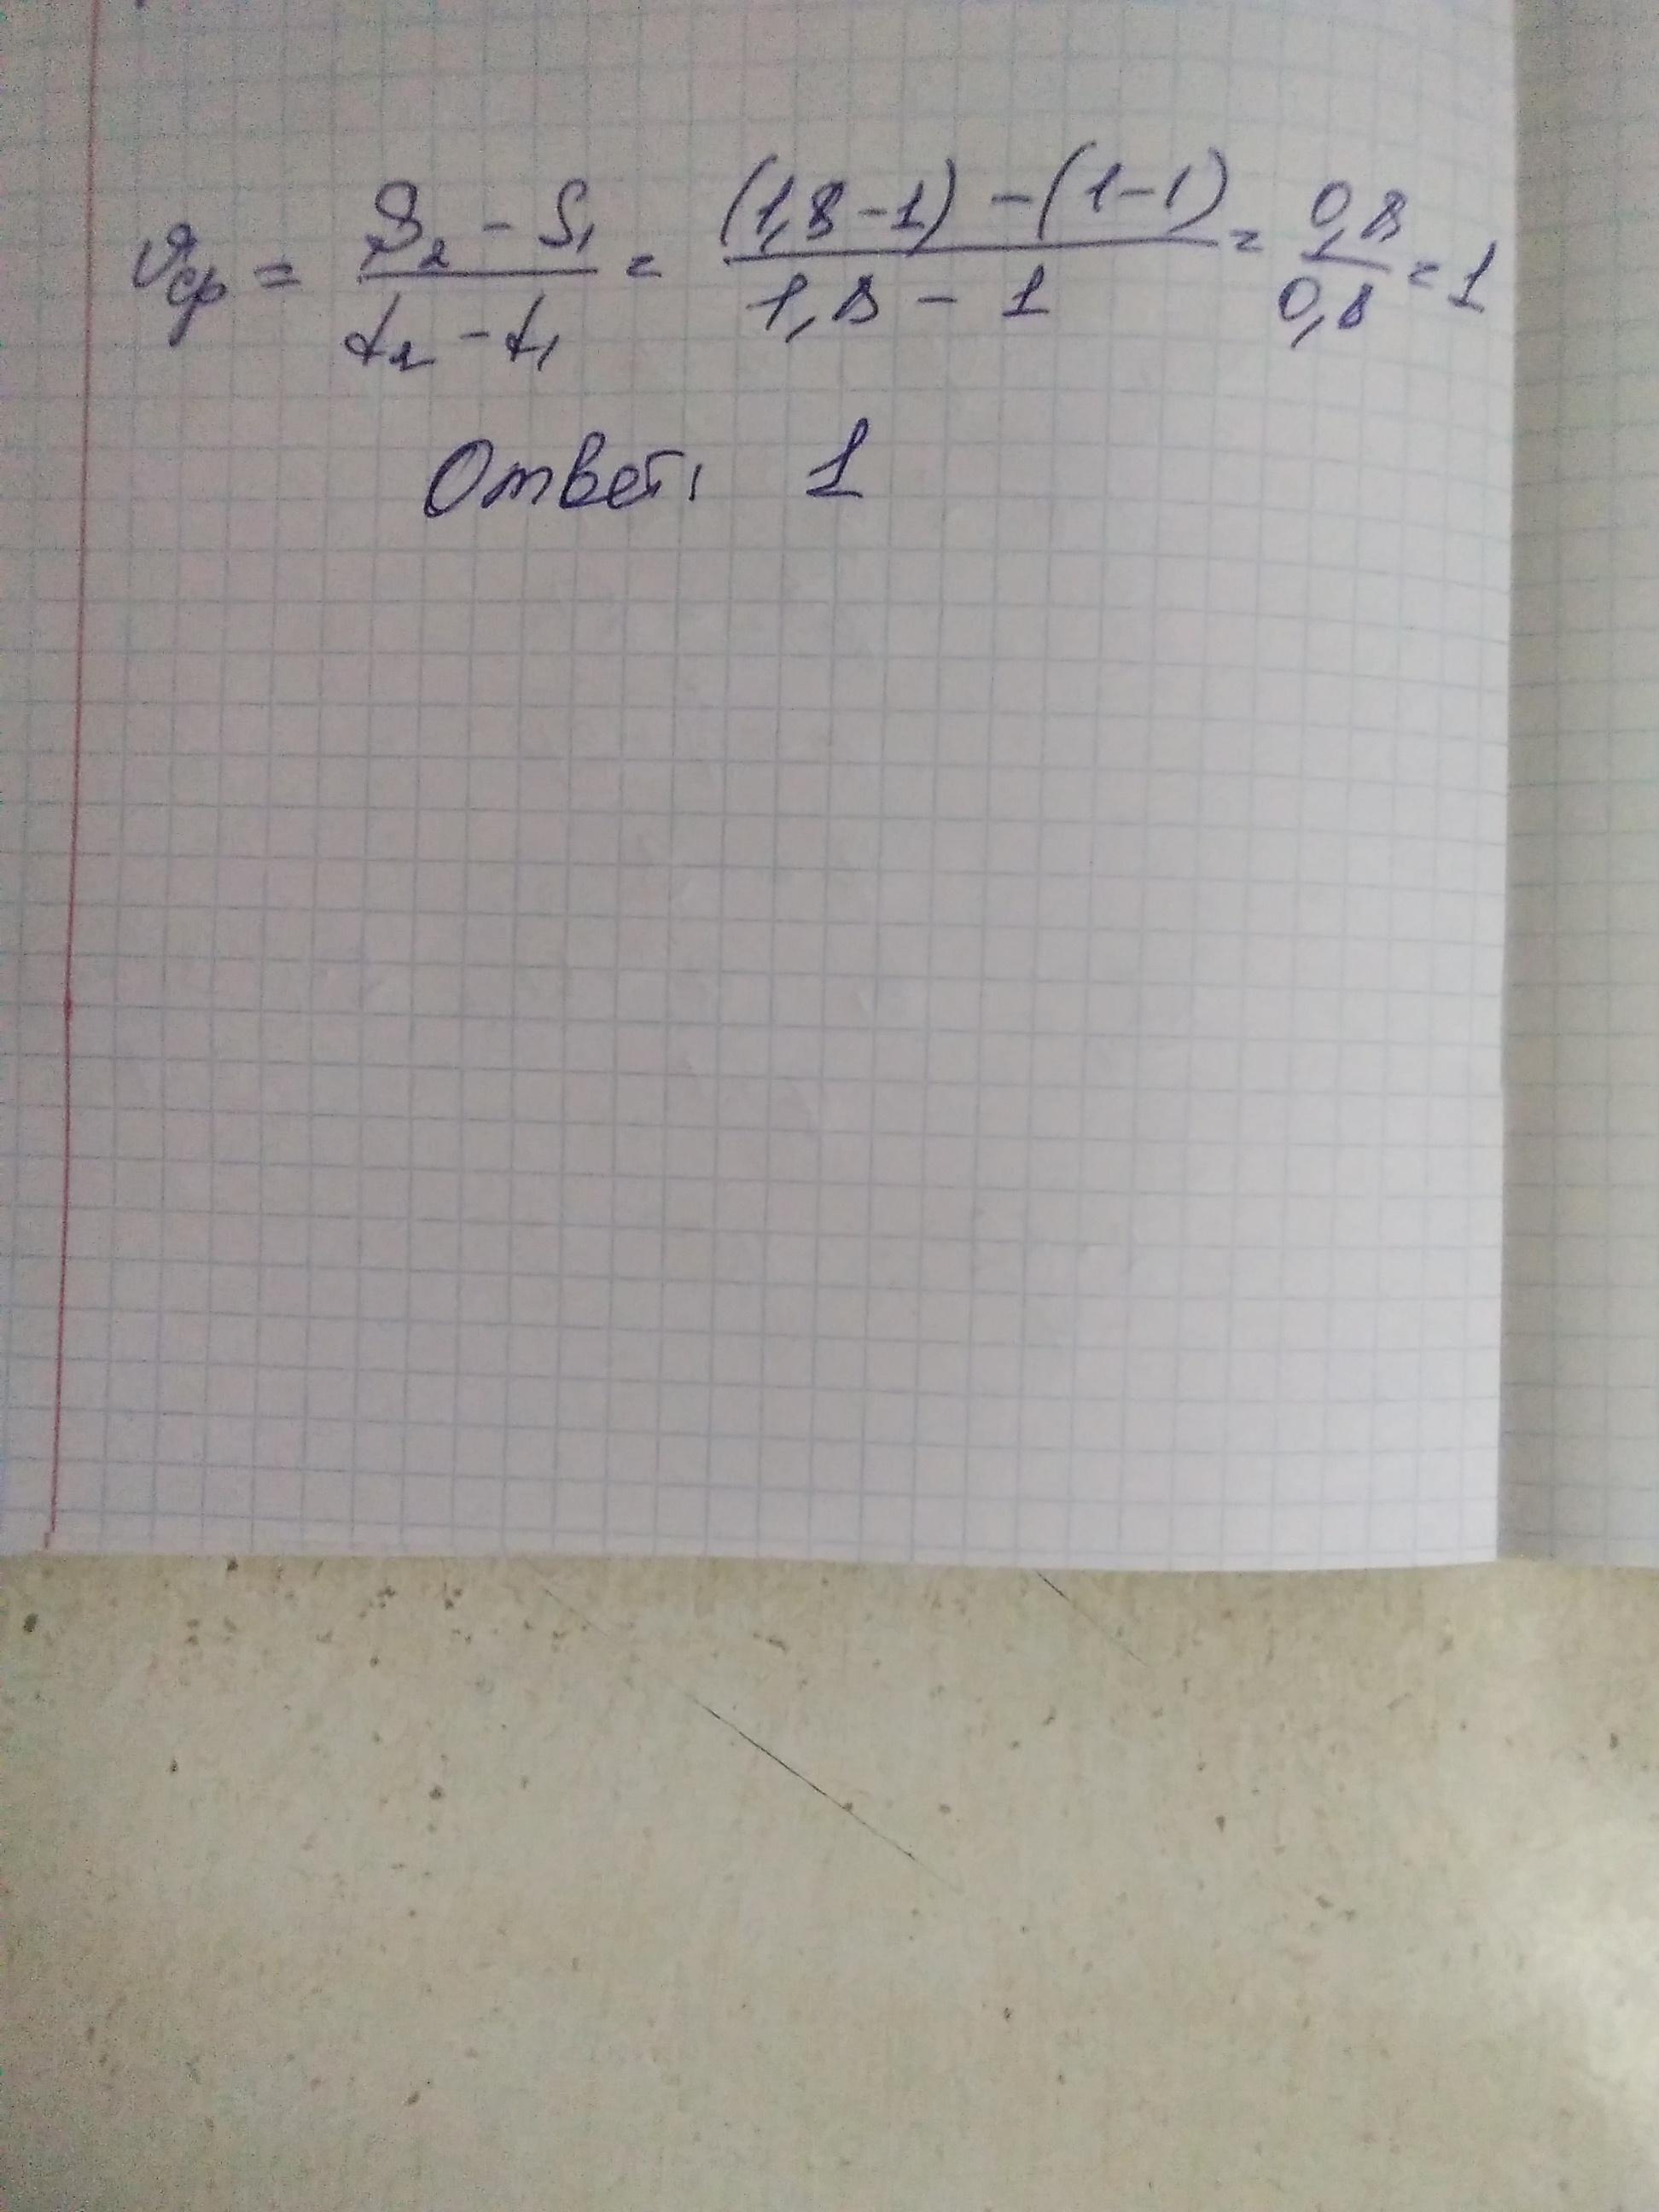 υср = (S₂ - S₁)/(t₂ - t₁) = ((1,8 - 1) - (1 - 1))/(1,8 - 1) = 0,8/0,8 = 1
Ответ: 1